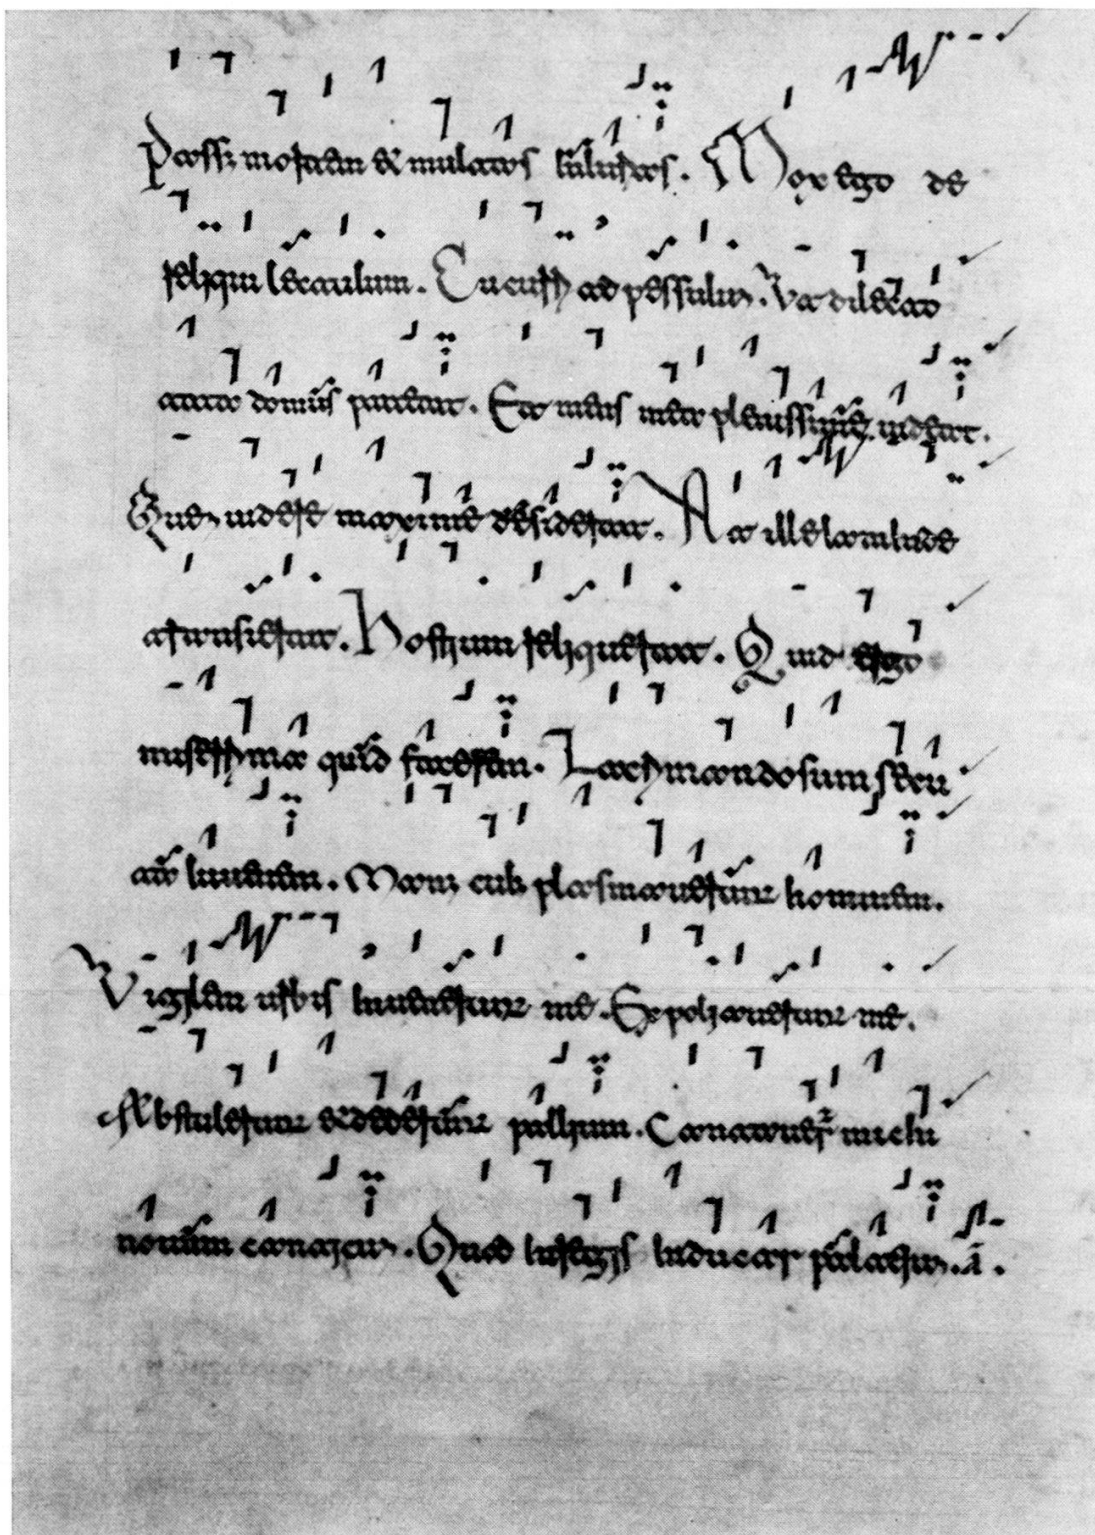 mortem &
Mox ego de
reliqui lectulum. Cucurri ad pessulum. Ut dilecto
tota domus pateat. Et mens mea plenissime uideat.
Quem uidere maxime desiderat. At ille iam inde
transierat. Hostium reliquerat. Quid ergo
miserrima quid facerem. Lacrimando sum secu
ta iuuenem. Manus cuius plasmauerunt hominem.
Vigilem urbis inuenerunt me. Expoliauerunt me.
Abstulerunt & dederunt pallium. Cantauerunt michi
nouum canticum. Quod in regis inducar palatium. A.